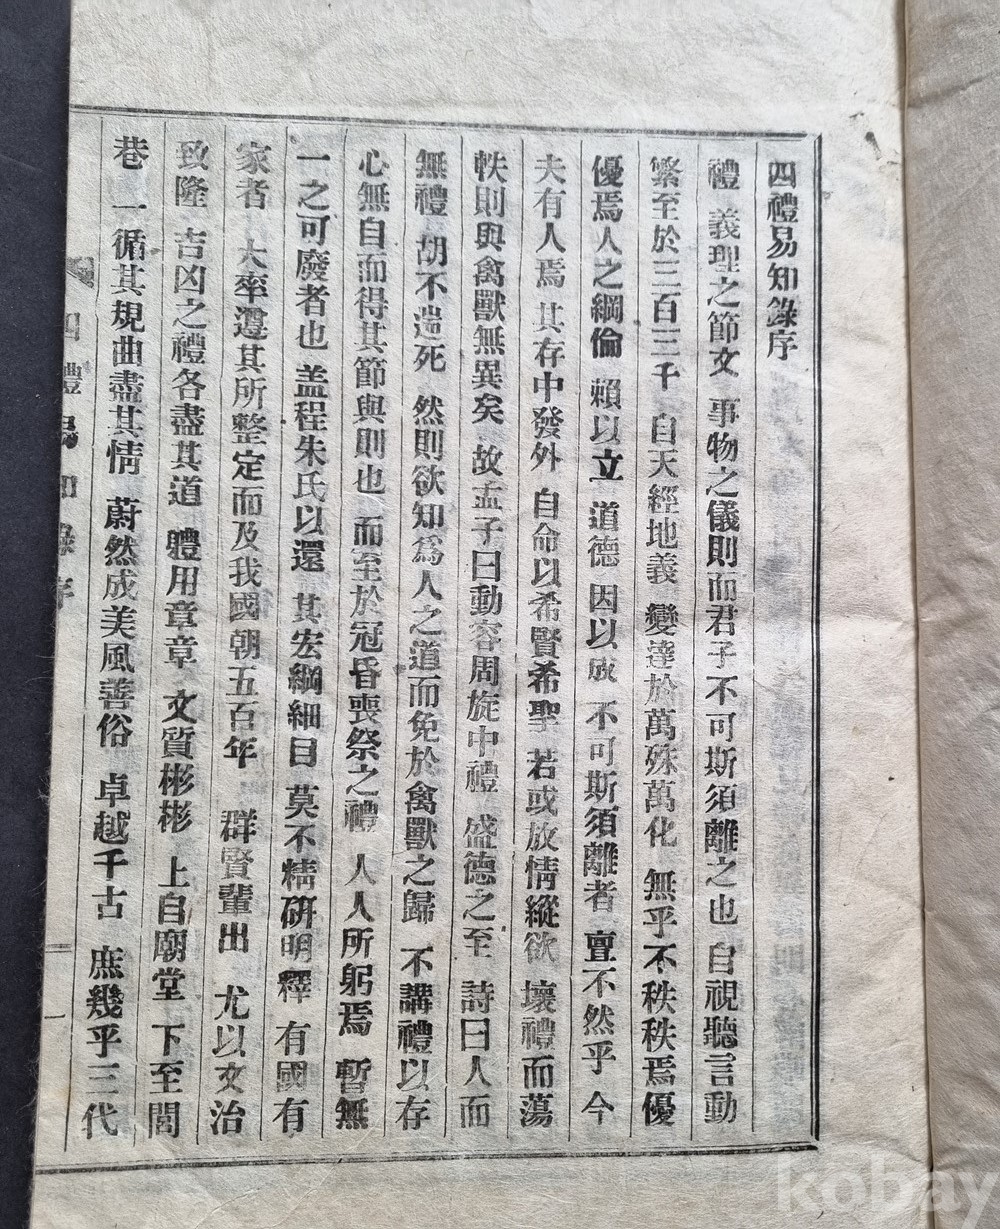 四禮易知錄序
禮 義理之節文 事物之儀則而君子不可斯須離之也 自視聽言動
繁至於三百三千 自天經地義 變達於萬殊萬化 無乎不秩秩焉優
優焉人之綱倫 賴以立 道德 因以成 不可斯須離者 亶不然乎 今
夫有人焉 其存中發外 自命以希賢希聖 若或放情縱欲 壞禮而蕩
帙則與禽獸無異矣 故孟子曰動容周旋中禮 盛德之至 詩曰人而
無禮 胡不遄死 然則欲知爲人之道而免於禽獸之歸 不講禮以存
心無自而得其節與則也 而至於冠昏喪祭之禮 人人所躬焉 暫無
一之可廢者也 盖程朱氏以還 其宏綱細目 莫不精硏明釋 有國有
家者 大率遵其所整定而及我國朝五百年 群賢輩出 尤以文治
致隆 吉凶之禮各盡其道 體用章章 文質彬彬 上自廟堂 下至閭
巷 一循其規曲盡其情 蔚然成美風善俗 卓越千古 庶幾乎三代
四禮易知錄序
一
kobay